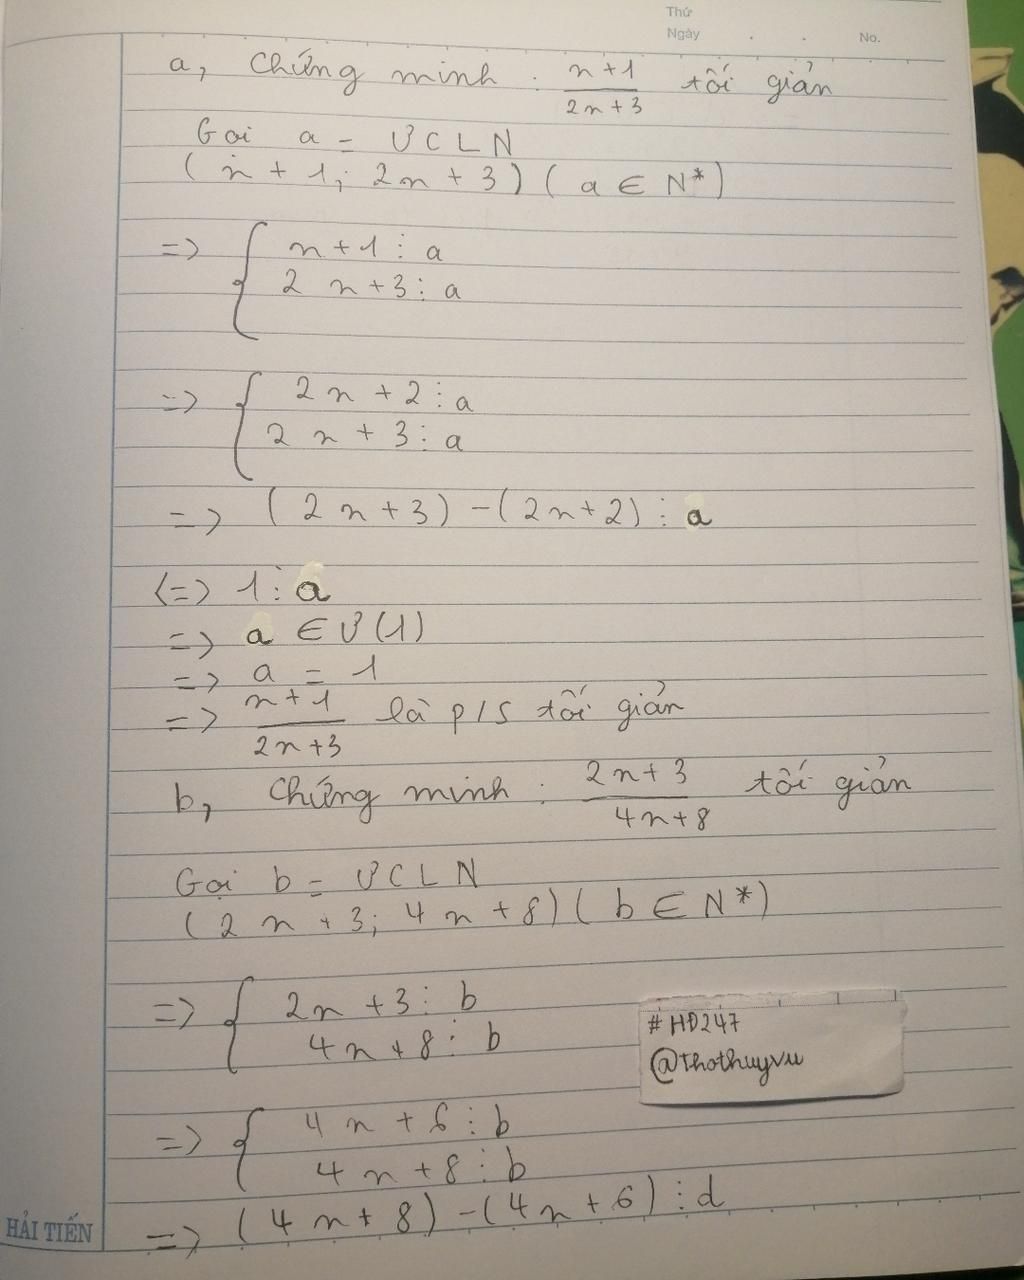 Thứ
Ngày . . No.
a, Chứng minh : n+1/2n+3 tối giản
Gọi a = ƯCLN
(n + 1; 2n + 3) ( a ∈ N*)
=> { n+1 ⋮ a
2n+3 ⋮ a
=> { 2n + 2 ⋮ a
2n + 3 ⋮ a
=> (2n+3) - (2n+2) ⋮ a
<=> 1 ⋮ a
=> a ∈ Ư(1)
=> a = 1
=> n+1/2n+3 là p/s tối giản
b, Chứng minh : 2n+3/4n+8 tối giản
Gọi b = ƯCLN
(2n + 3; 4n + 8) ( b ∈ N*)
=> { 2n + 3 ⋮ b
4n + 8 ⋮ b
#HĐ247
@Thothuyvu
=> { 4n + 6 ⋮ b
4n + 8 ⋮ b
=> (4n + 8) - (4n + 6) ⋮ d
HẢI TIẾN